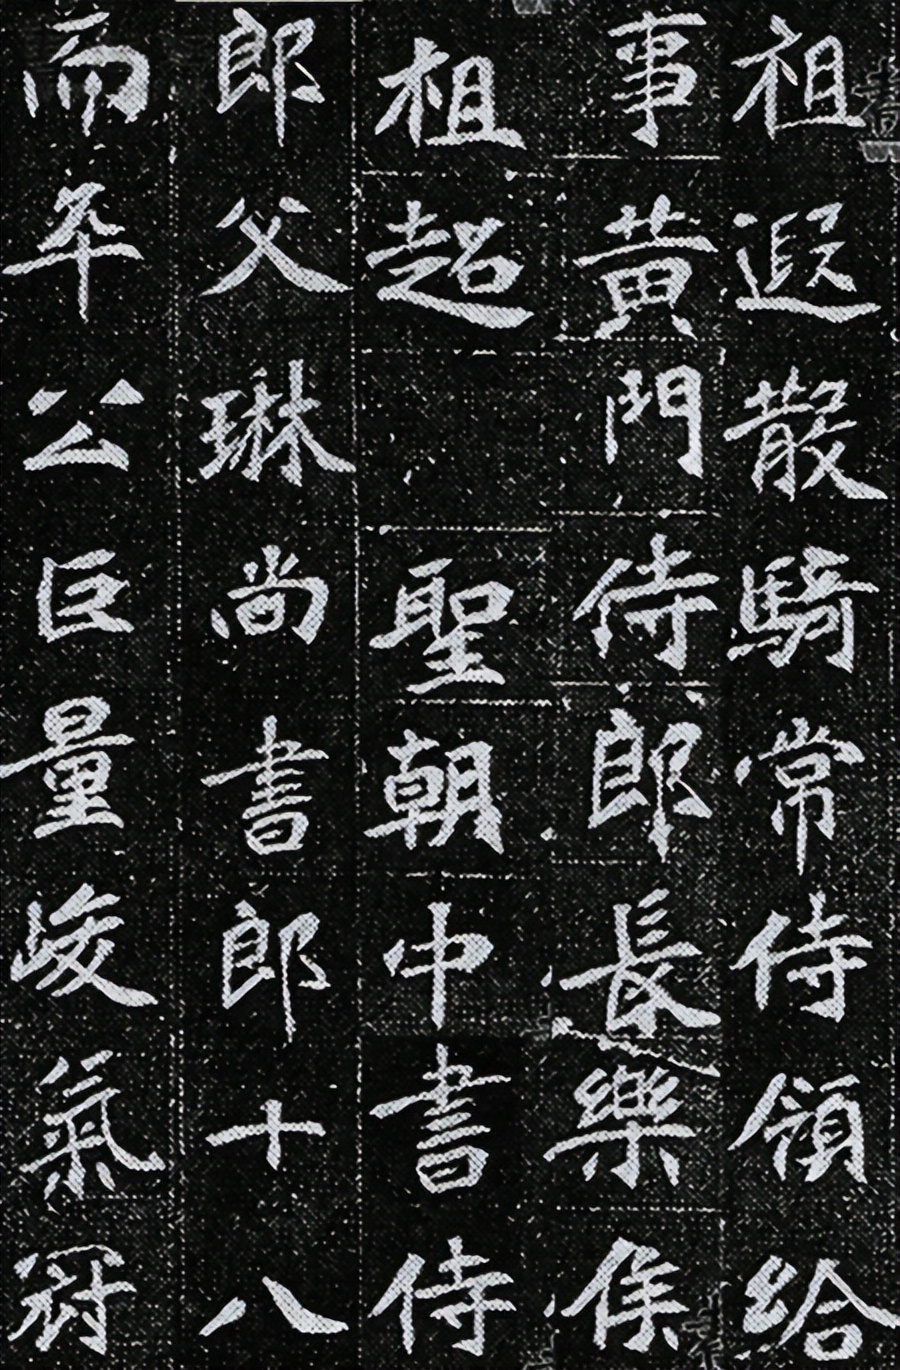 祖遐散騎常侍領給
事黃門侍郎長樂侯
祖超 聖朝中書侍
郎父琳尚書郎十八
而卒公巨量峻氣冠